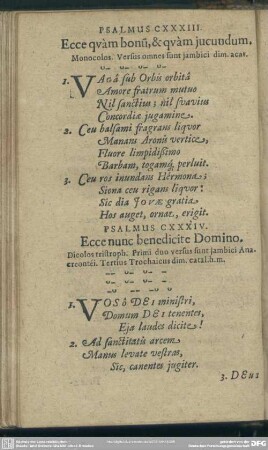 PSALMUS CXXXIII.
Ecce qvàm bonũ, & qvàm jucundum.
Monocolos. Versus omnes sunt jambici dim. acat.
1. VAgâ sub Orbis orbitâ
Amore fratrum mutuo
Nil sanctius; nil svavius
Concordiæ jugamine.
2. Ceu balsami fragrans liqvor
Manans Aronis vertice,
Fluore limpidissimo
Barbam, togamq́; perluit.
3. Ceu ros inundans Hermona;
Siona ceu rigans liqvor:
Sic dia JOVÆ gratia
Hos auget, ornat, erigit.
PSALMUS CXXXIV.
Ecce nunc benedicite Domino.
Dicolos tristroph. Primi duo versus sunt jambici Ana-
creontei. Tertius Trochaicus dim. catal. h. m.
1. VOS ô DEI ministri,
Domum DEI tenentes,
Eja laudes dicite!
2. Ad sanctitatis arcem
Manus levate vestras,
Sic, canentes jugiter.
3. DEus